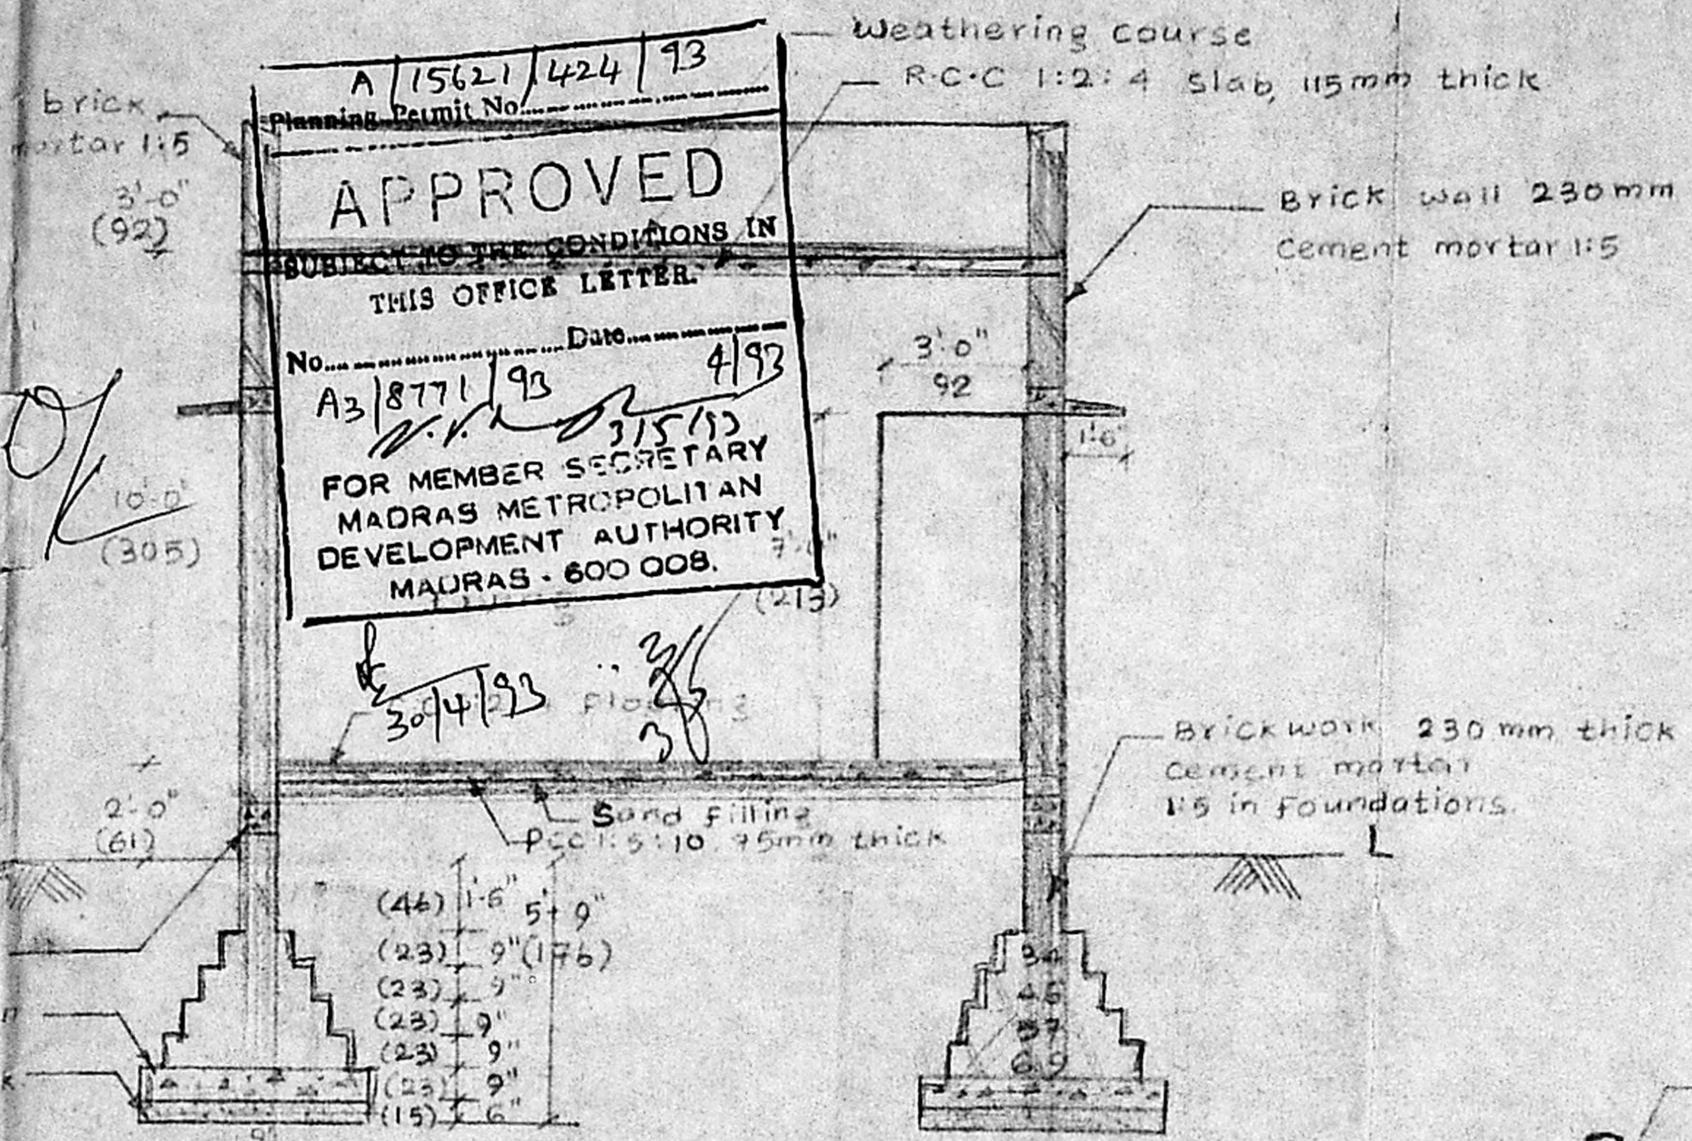 Weathering course
R.C.C 1:2:4 Slab, 115mm thick
brick
mortar 1:5
3'-0"
(92)
A/15621/424/93
Planning Permit No
APPROVED
SUBJECT TO THE CONDITIONS IN
THIS OFFICE LETTER.
No. Date
A3/8771/93 4/93
3/5/93
FOR MEMBER SECRETARY
MADRAS METROPOLITAN
DEVELOPMENT AUTHORITY
MADRAS - 600 008.
30/4/93
Brick wall 230mm
Cement mortar 1:5
3'-0"
92
1'6"
10'-0"
(305)
(213)
Flooring
Sand filling
PCC 1:5:10 75mm thick
Brickwork 230mm thick
cement mortar
1:5 in foundations.
2'-0"
(61)
(46) 1'-6" 5'+9"
(23) 9" (176)
(23) 9"
(23) 9"
(23) 9"
(23) 9"
(15) 6"
34
46
57
69
9"